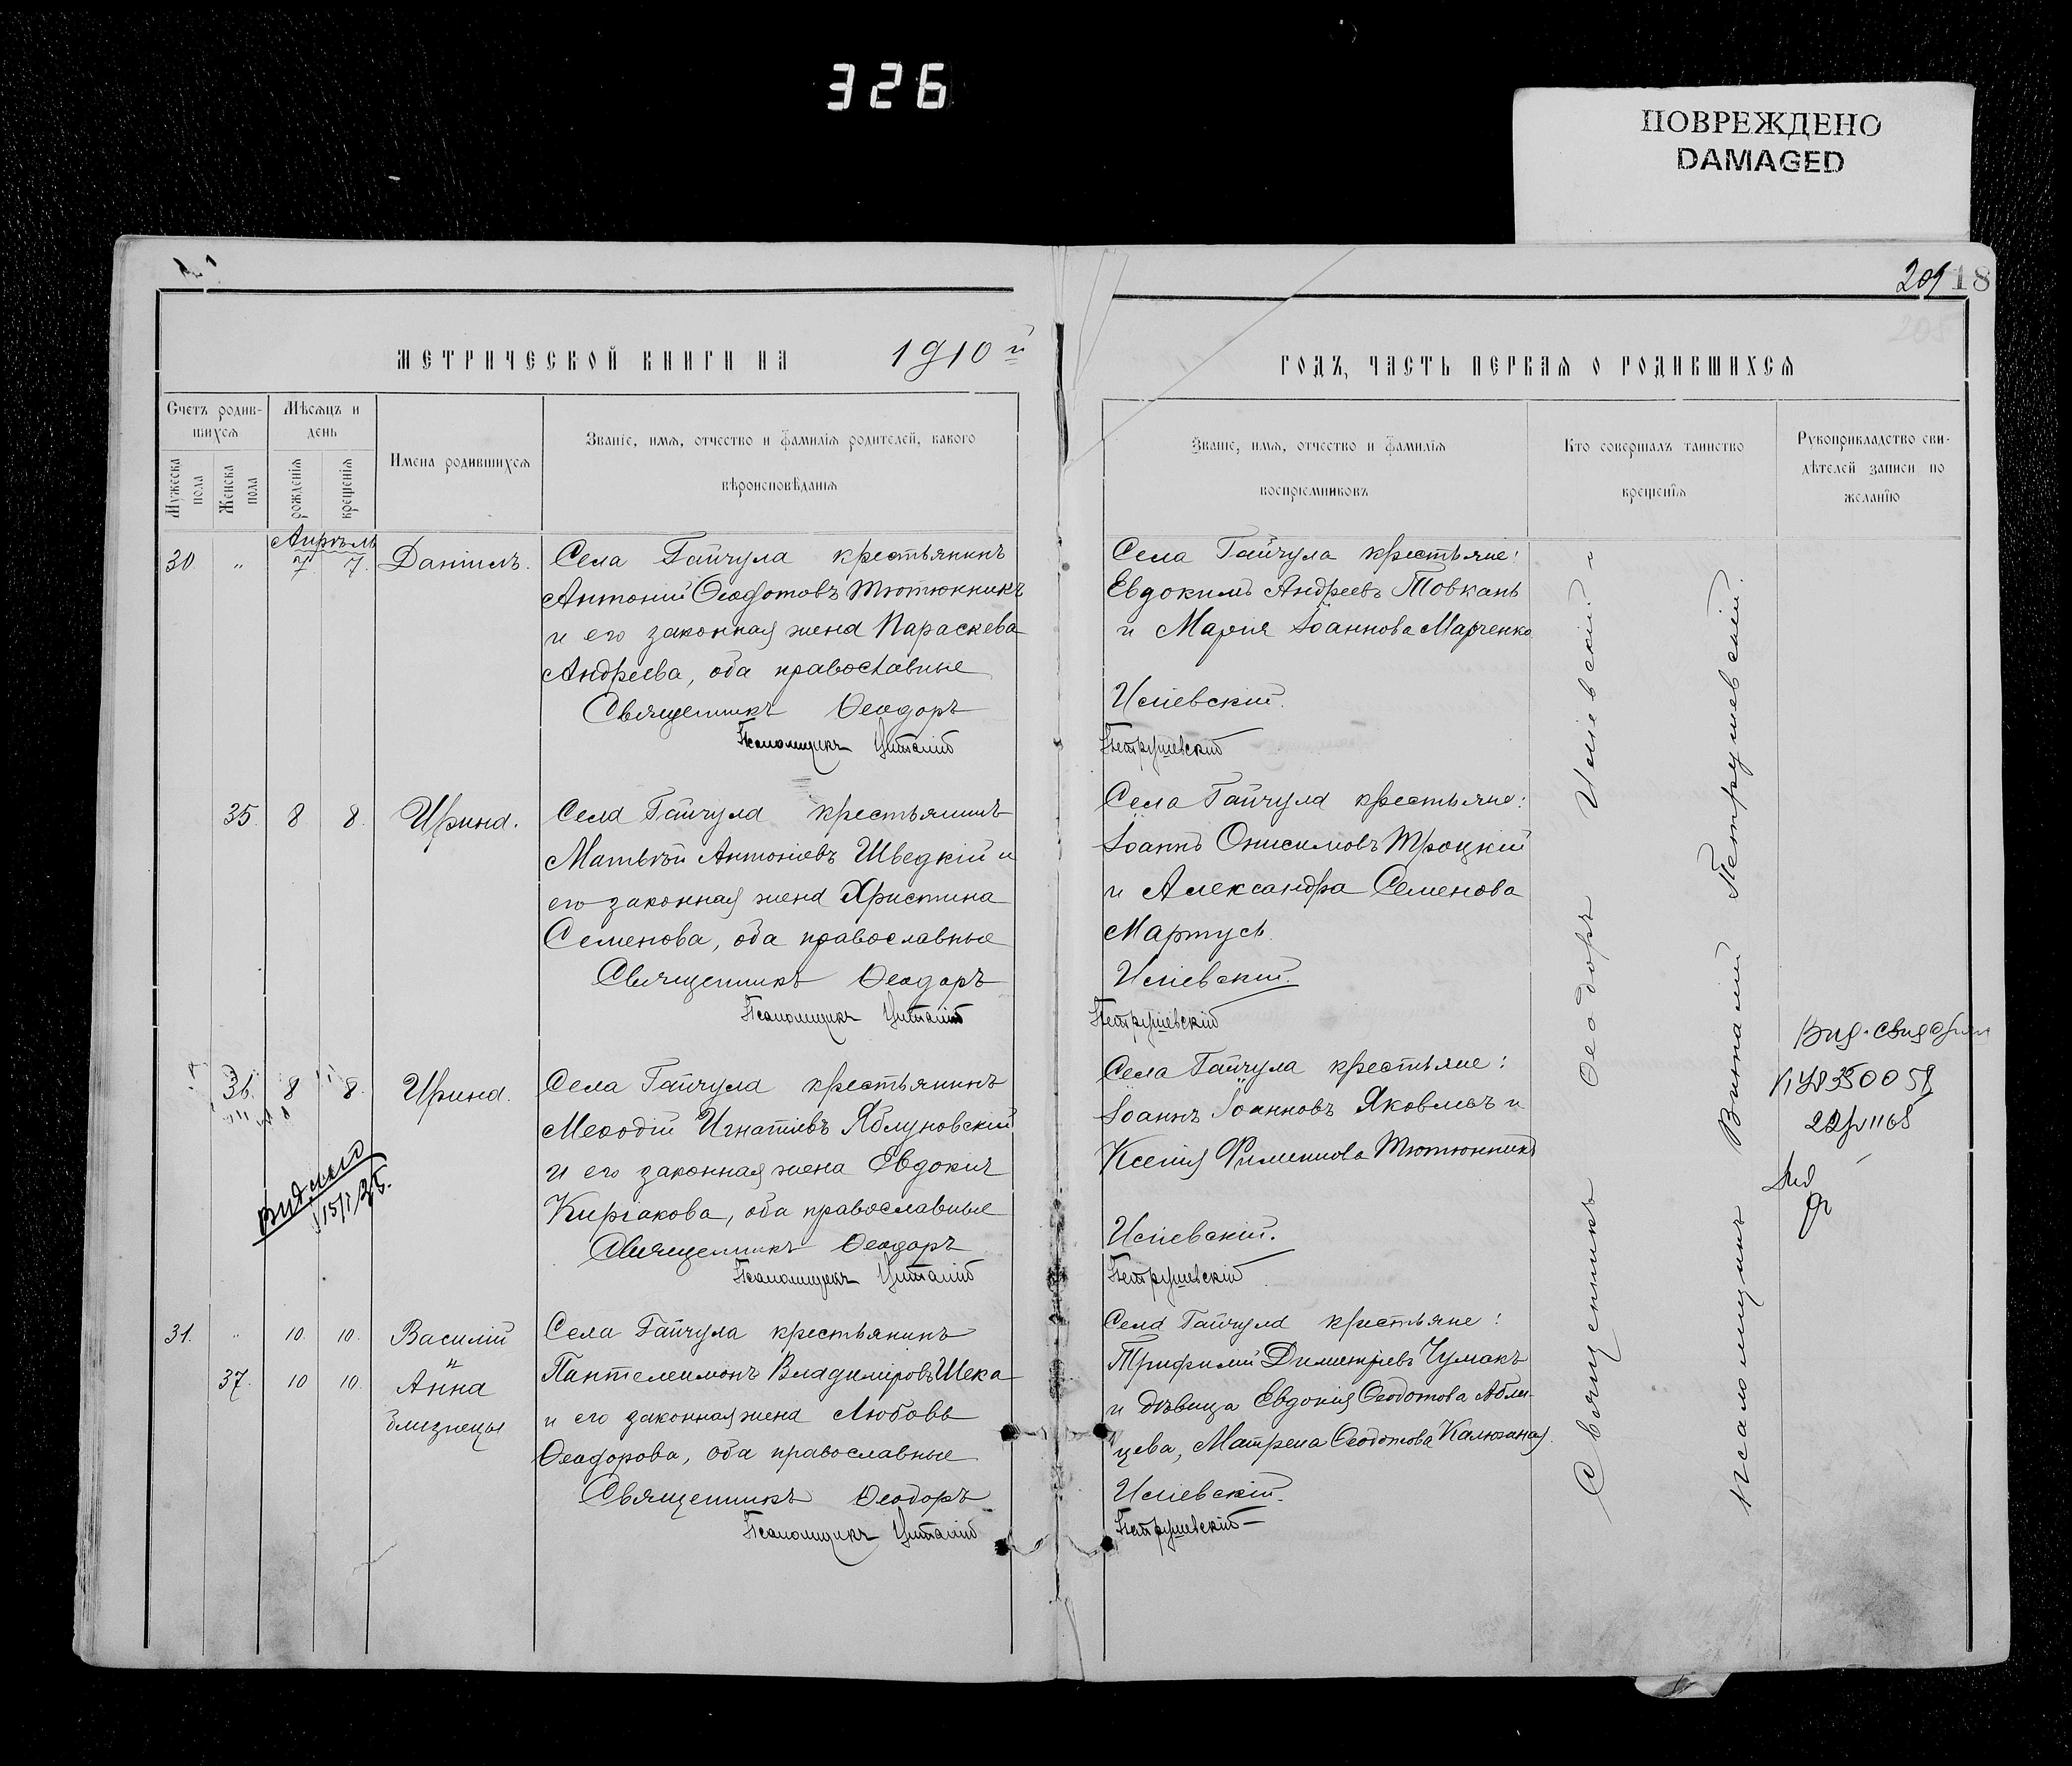 326
ПОВРЕЖДЕНО
DAMAGED
209 18
205
МЕТРИЧЕСКОЙ КНИГИ НА 1910й
ГОДЪ, ЧАСТЬ ПЕРВАЯ О РОДИВШИХСЯ
Счетъ родив-
шихся
Мужеска пола
Женска пола
Мѣсяцъ и
день
рожденія
крещенія
Имена родившихся
Званіе, имя, отчество и фамилія родителей, какого
вѣроисповѣданія
Званіе, имя, отчество и фамилія
воспріемниковъ
Кто совершалъ таинство
крещенія
Рукоприкладство сви-
дѣтелей записи по
желанію
Апрѣль
30. " 7. 7. Даніилъ. Села Гайчула крестьянинъ
Антоній Ѳеодотовъ Тютюнникъ
и его законная жена Параскева
Андреева, оба православные
Священникъ Ѳеодоръ
Псаломщикъ Виталій
Села Гайчула крестьяне:
Евдокимъ Андреевъ Товкань
и Марія Іоаннова Марченко
Исіевскій.
Петрушевскій
35. 8 8. Ирина. Села Гайчула крестьянинъ
Матвѣй Антоніевъ Шведкій и
его законная жена Христина
Семенова, оба православные
Священникъ Ѳеодоръ
Псаломщикъ Виталій
Села Гайчула крестьяне:
Іоаннъ Онисимовъ Троцкій
и Александра Семенова
Мартусь
Исіевскій.
Петрушевскій
36. 8 8. Ирина. Села Гайчула крестьянинъ
Меѳодій Игнатіевъ Яблуновскій
и его законная жена Евдокія
Киріакова, оба православные
Священникъ Ѳеодоръ
Псаломщикъ Виталій
15/I 25.
Села Гайчула крестьяне:
Іоаннъ Іоанновъ Яковлевъ и
Ксенія Тютюнникъ
Исіевскій.
Петрушевскій
31. " 10. 10. Василій
и
37. 10 10. Анна
близнецы
Села Гайчула крестьянинъ
Пантелеимонъ Владиміровъ Шека
и его законная жена Любовь
Ѳеодорова, оба православные
Священникъ Ѳеодоръ
Псаломщикъ Виталій
Села Гайчула крестьяне:
Трифилій Димитріевъ Чумакъ
и дѣвица Евдокія Ѳеодотова Абли-
цева, Матрена Ѳеодотова Калюжная.
Исіевскій.
Петрушевскій
Священникъ Ѳеодоръ Исіевскій. "
Псаломщикъ Виталій Петрушевскій.